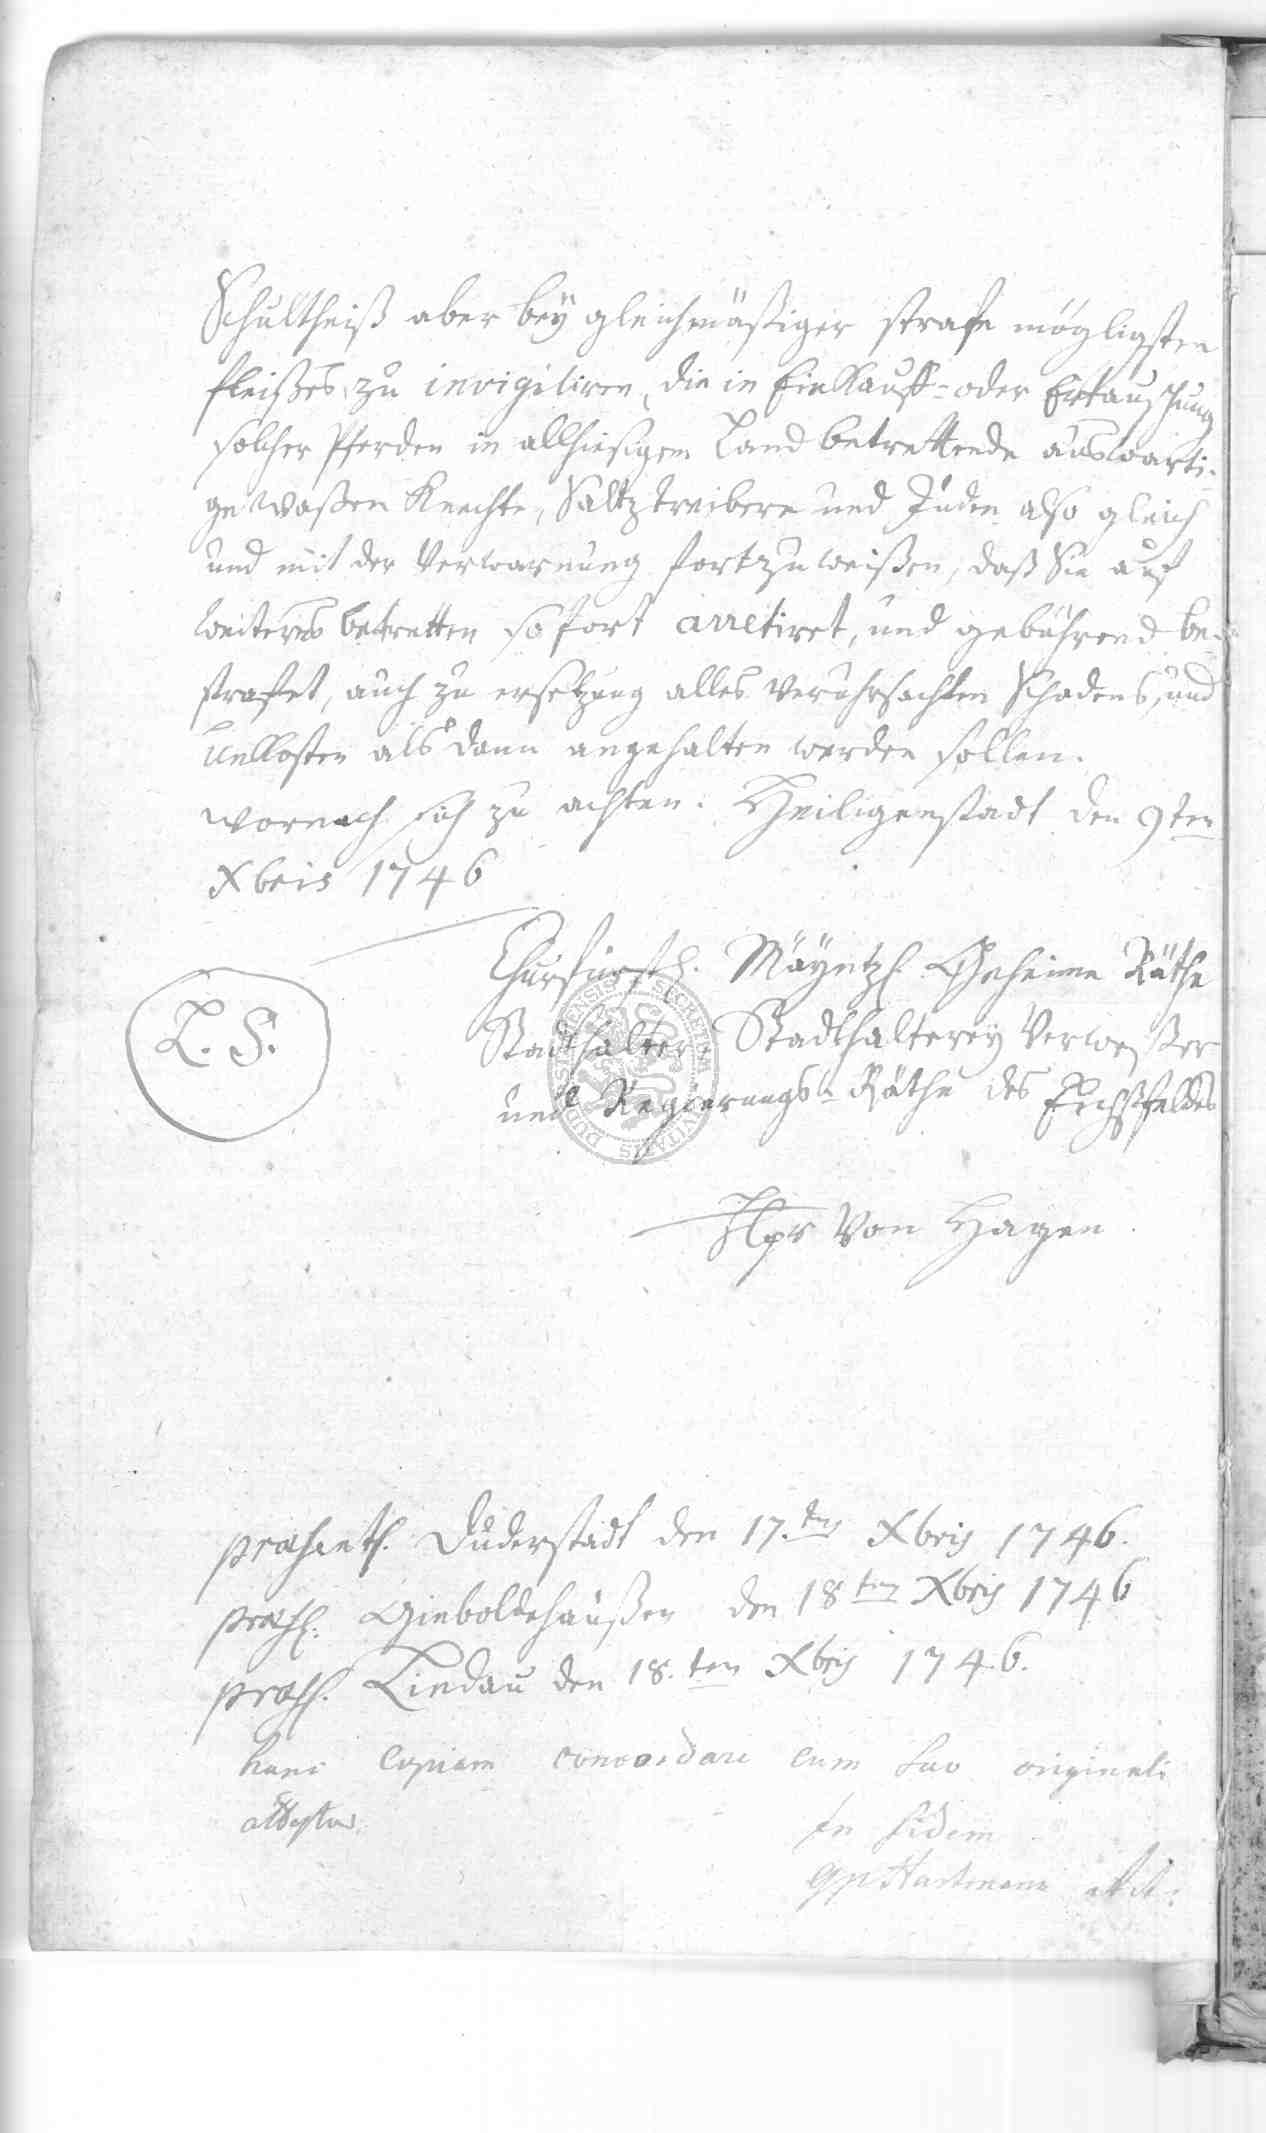 Schultheiß aber beÿ gleichmäßiger strafe mögligsten
fleißes zu invigiliren, die in Einkauff- oder Ertauschung
solcher Pferden in allhiesigem Land betrettende auswarti-
ge Waßen Knechte, Saltztreibere und Juden also gleich
und mit der Verwarnung fortzuweißen, daß Sie auf
weiteres betretten so fort arretiret, und gebührend be-
strafet, auch zu ersetzung alles veruhrsachten Schadens, und
Unkosten als dann angehalten werden sollen.
wornach sich zu achten. Heiligenstadt den 9ten
Xbris 1746
L. S.
Churfürstl. Mäyntzl. Geheime Räthe
Stadthalter Stadthalterey Verweßer
und Regierungs-Räthe des Eichßfeldes
von Hagen
præsent. Duderstadt den 17.ten Xbris 1746.
præs. Gieboldehaußen den 18ten Xbris 1746
præs. Lindau den 18.ten Xbris 1746.
hanc Copiam concordare cum suo originali
attestor
In fidem
Hartmann